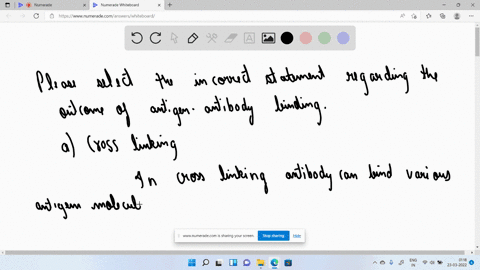 Numerade
Numerade Whiteboard
https://www.numerade.com/answers/whiteboard/
Please select the incorrect statement regarding the
outcome of antigen-antibody binding.
a) Cross linking
In cross linking antibody can bind various
antigen molecul
www.numerade.com is sharing your screen.
Stop sharing
Hide
ENG
IN
23-03-2022